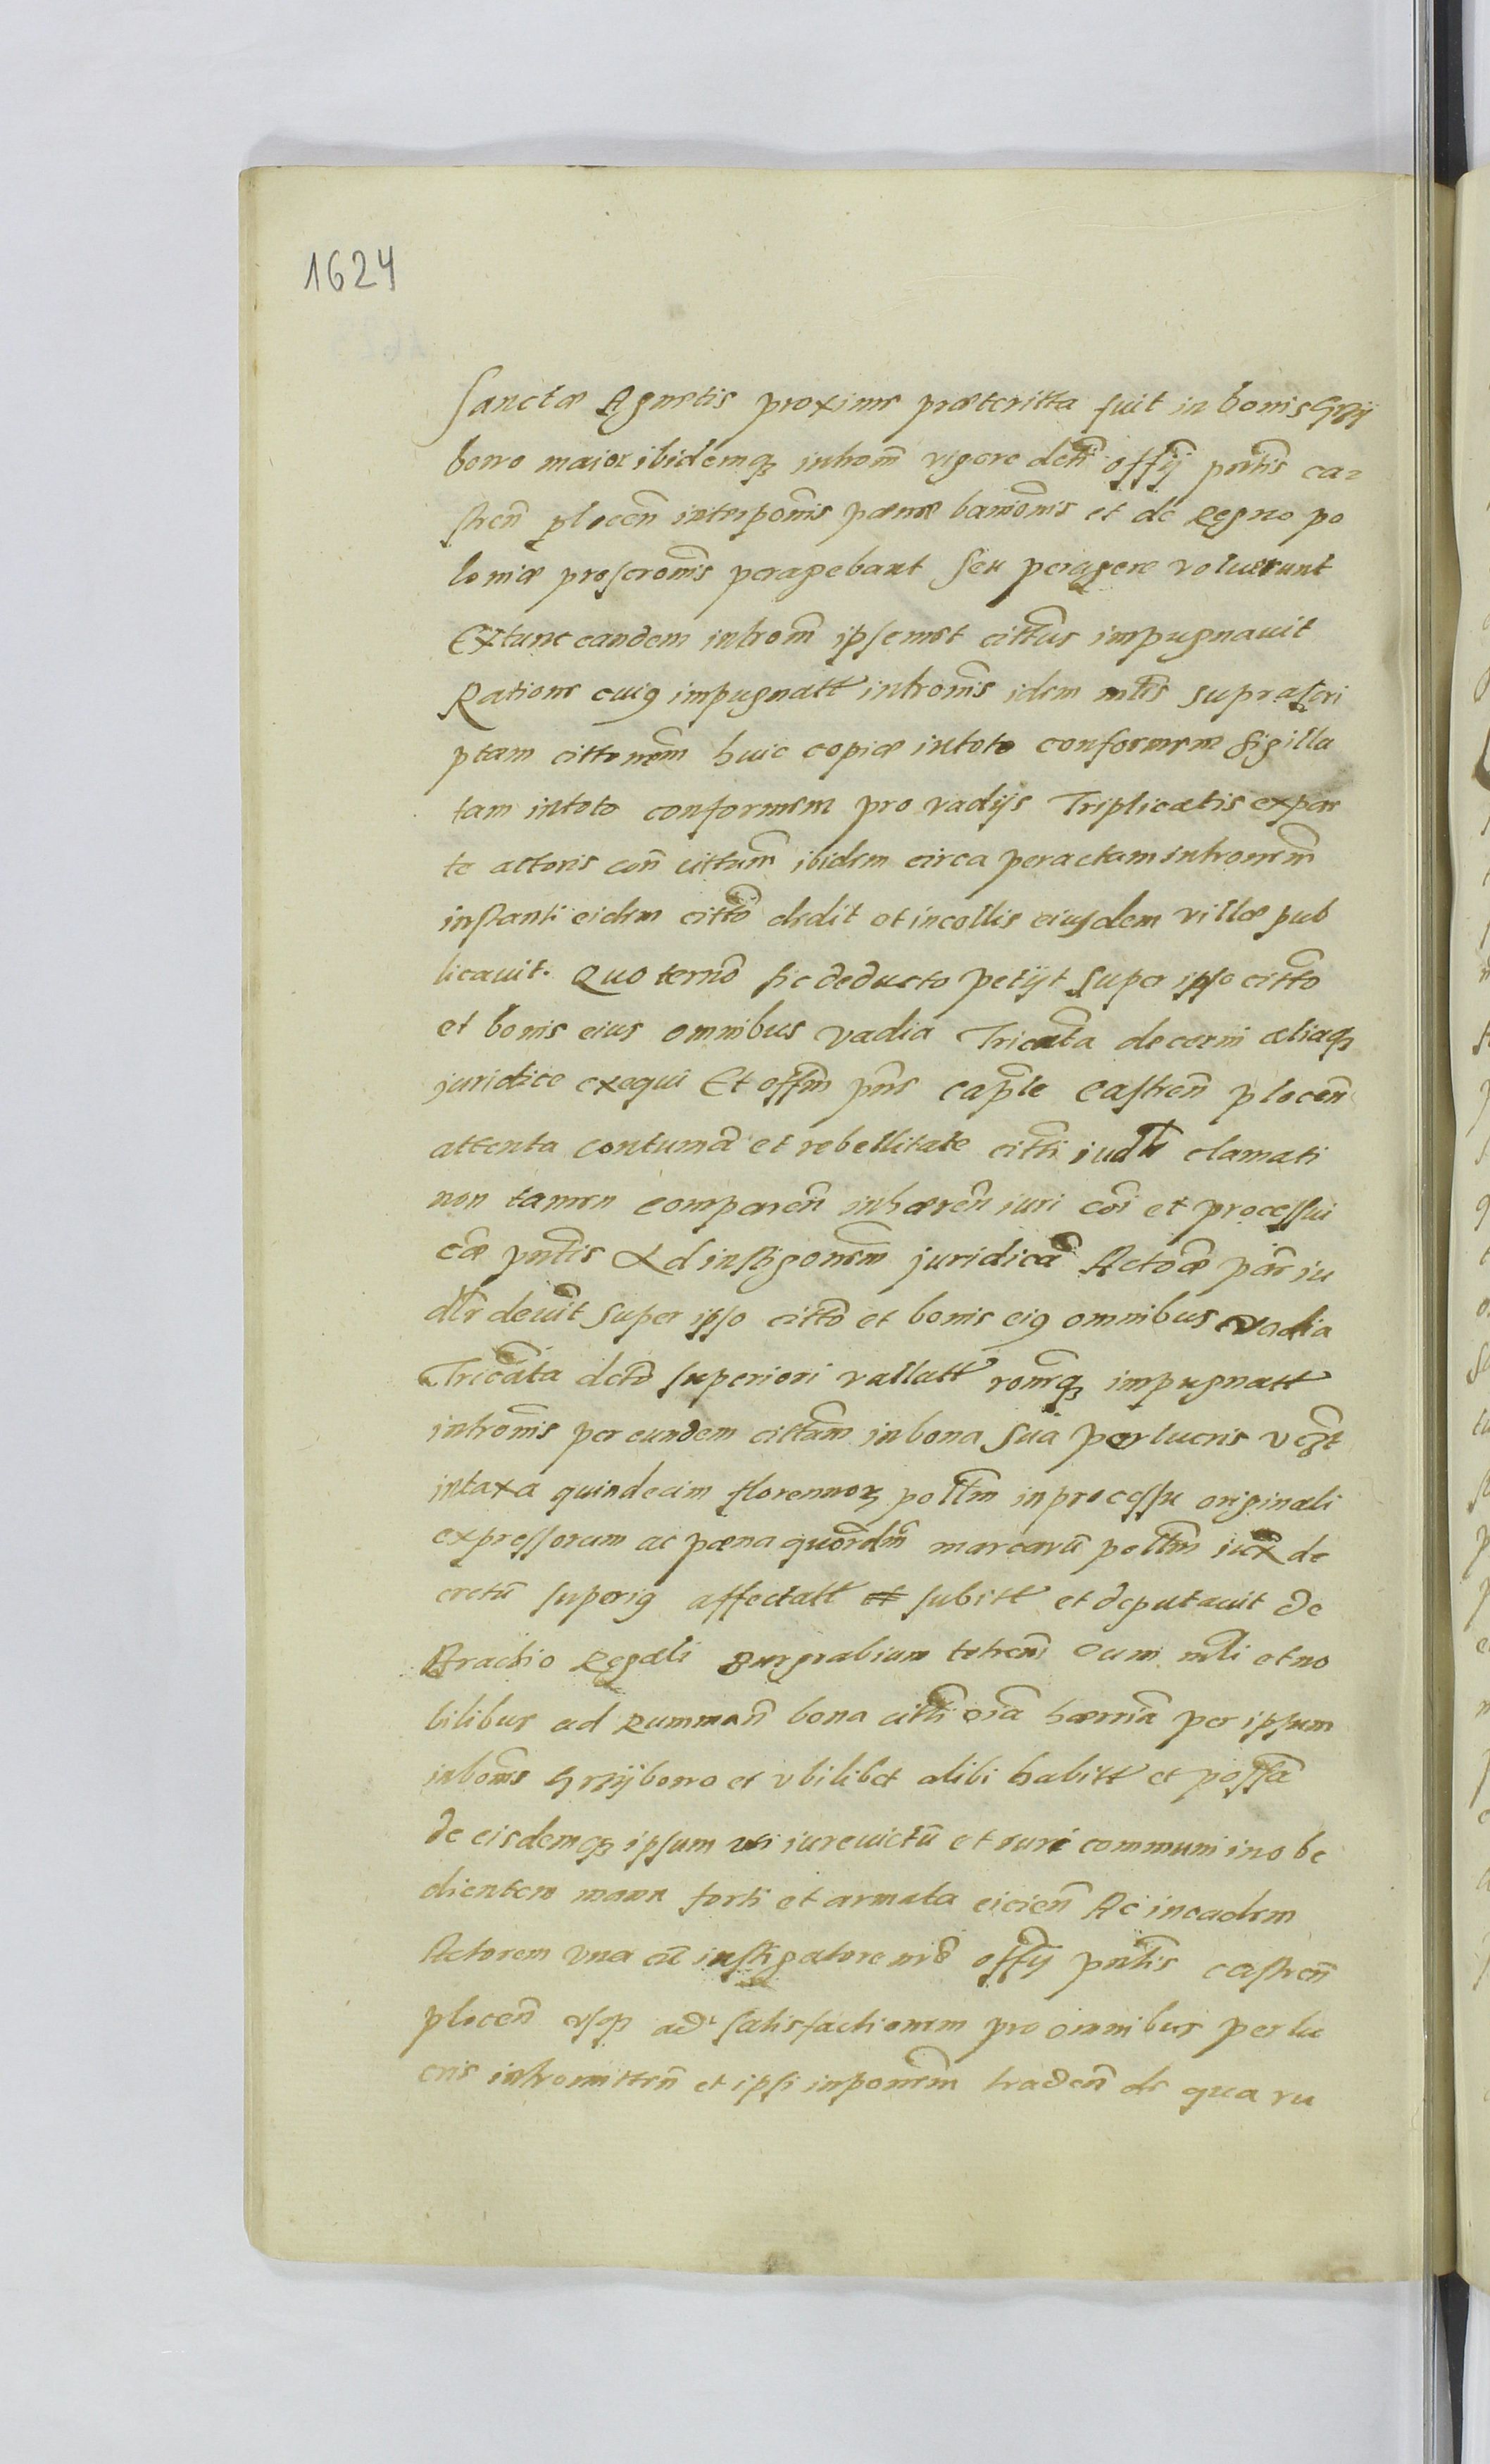 1624
Sanctæ Agnetis proxime præteritta fuit in bonis Grzy
bowo maior ibidemq; introm̃ vigore dcti offij pntis ca-
stren̄ plocen̄ interpom̃is pœnæ baniom̃is et de Regno po
loniæ proscrom̃is peragebant seu peragere voluerunt
Extunc eandem introm̃ ipsemet cittus impugnauit
Ratione cuiq impugnatt introm̃is idem mtis suprascri
ptam cittonem huic copiæ intoto conformem sigilla
tam intoto conformem pro vadijs Triplicatis expar
te actoris con̄ cittum ibidem circa peractam intromem̃
instanti eidem citto dedit et incollis eiusdem villæ pub
licauit. Quo termo sic deducto petijt super ipso citto
et bonis eius omnibus vadia Tricata decerni aliaq;
juridice exequi Et offm pns caple Castren̄ plocen̄
attenta contuma et rebellitate citti iudtr clamati
non tamen comparen̄ inhæren̄ iuri coi et processui
cæ pntis Ad instigonem juridica Actoæ par iu
dtr deuit super ipso citto et bonis eiq omnibus vadia
Tricata dcto superiori vallatt romq; impugnatt
introm̃is per eundem cittum in bona sua perlucris
intaxa quindecim florenuor poltm in processu originali
expressorum ac pœna quordm marcarū poltm iux de
cretū superiq affectatt subitt et deputauit de
Brachio Regali Burgrabium cum mli et no
bilibus ad Rummanň bona citti oia hærria per ipsum
in bonis Grzybowo et vbilibet alibi habitt et possa
de eisdemq; ipsum uti iureuictū et iuri communi inobe
dientem manu forti et armata eicien̄ Ac ineadem
Actorem vna cū instigatore offij pntis castren̄
plocen̄ vsq; ad satisfactionem pro omnibus perlu
cris intromitten̄ et ipsi inponem traden̄ de qua ru